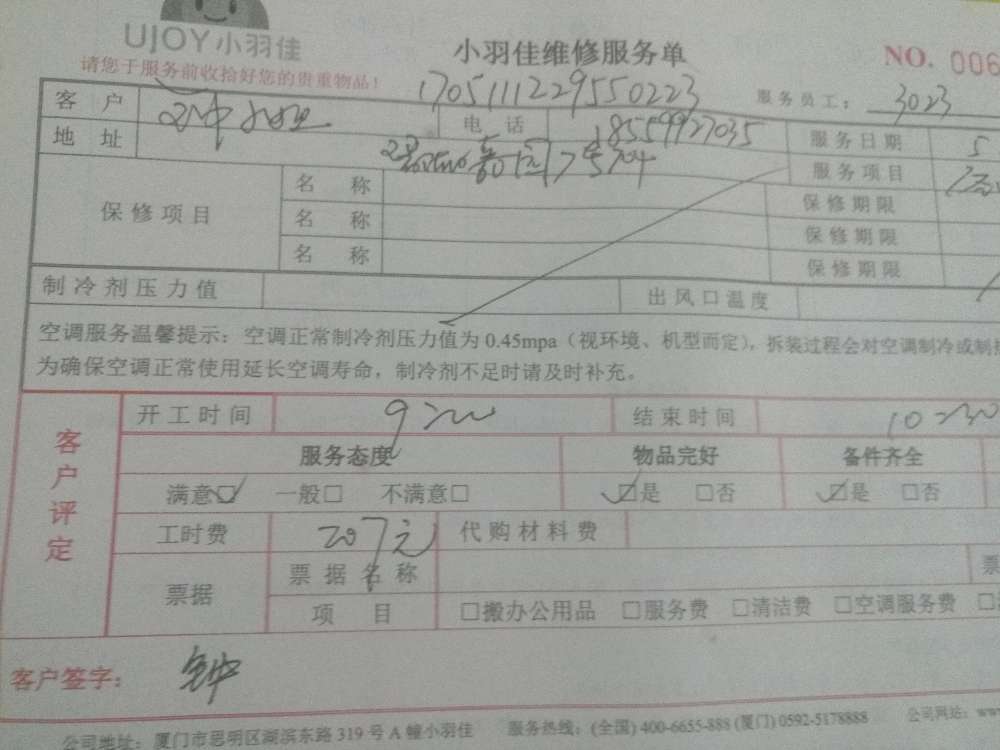 UJOY小羽佳
小羽佳维修服务单
NO. 006
请您于服务前收拾好您的贵重物品！
1705111229550223
服务员工： 3023
客 户 电 话 18559927035 服务日期 5
地 址 服务项目
保修项目
名 称 保修期限
名 称 保修期限
名 称 保修期限
制冷剂压力值 出风口温度
空调服务温馨提示：空调正常制冷剂压力值为 0.45mpa（视环境、机型而定），拆装过程会对空调制冷或制
为确保空调正常使用延长空调寿命，制冷剂不足时请及时补充。
客户评定
开工时间 9:00 结束时间 10:30
服务态度 物品完好 备件齐全
满意☑ 一般□ 不满意□ ☑是 □否 ☑是 □否
工时费 207元 代购材料费
票据 票据名称 票
项 目 □搬办公用品 □服务费 □清洁费 □空调服务费 □
客户签字： 钟
公司地址：厦门市思明区湖滨东路 319 号 A 幢小羽佳 服务热线：(全国) 400-6655-888 (厦门) 0592-5178888 公司网站：www